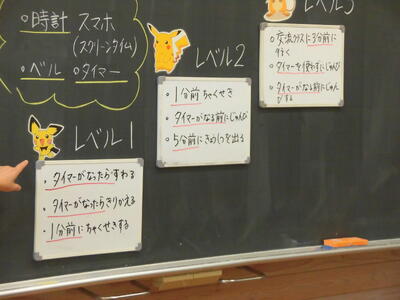 ◦時計 スマホ
(スクリーンタイム)
◦ベル ◦タイマー
レベル1
・タイマーがなったらすわる
・タイマーがなったらきりかえる
・1分前にちゃくせきする
レベル2
◦1分前ちゃくせき
・タイマーがなる前にじゅんび
・5分前にきょうしつを出る
レベル3
◦交流クラスに3分前に
行く
◦タイマーを使わずにじゅんび
◦タイマーがなる前にじゅん
びする